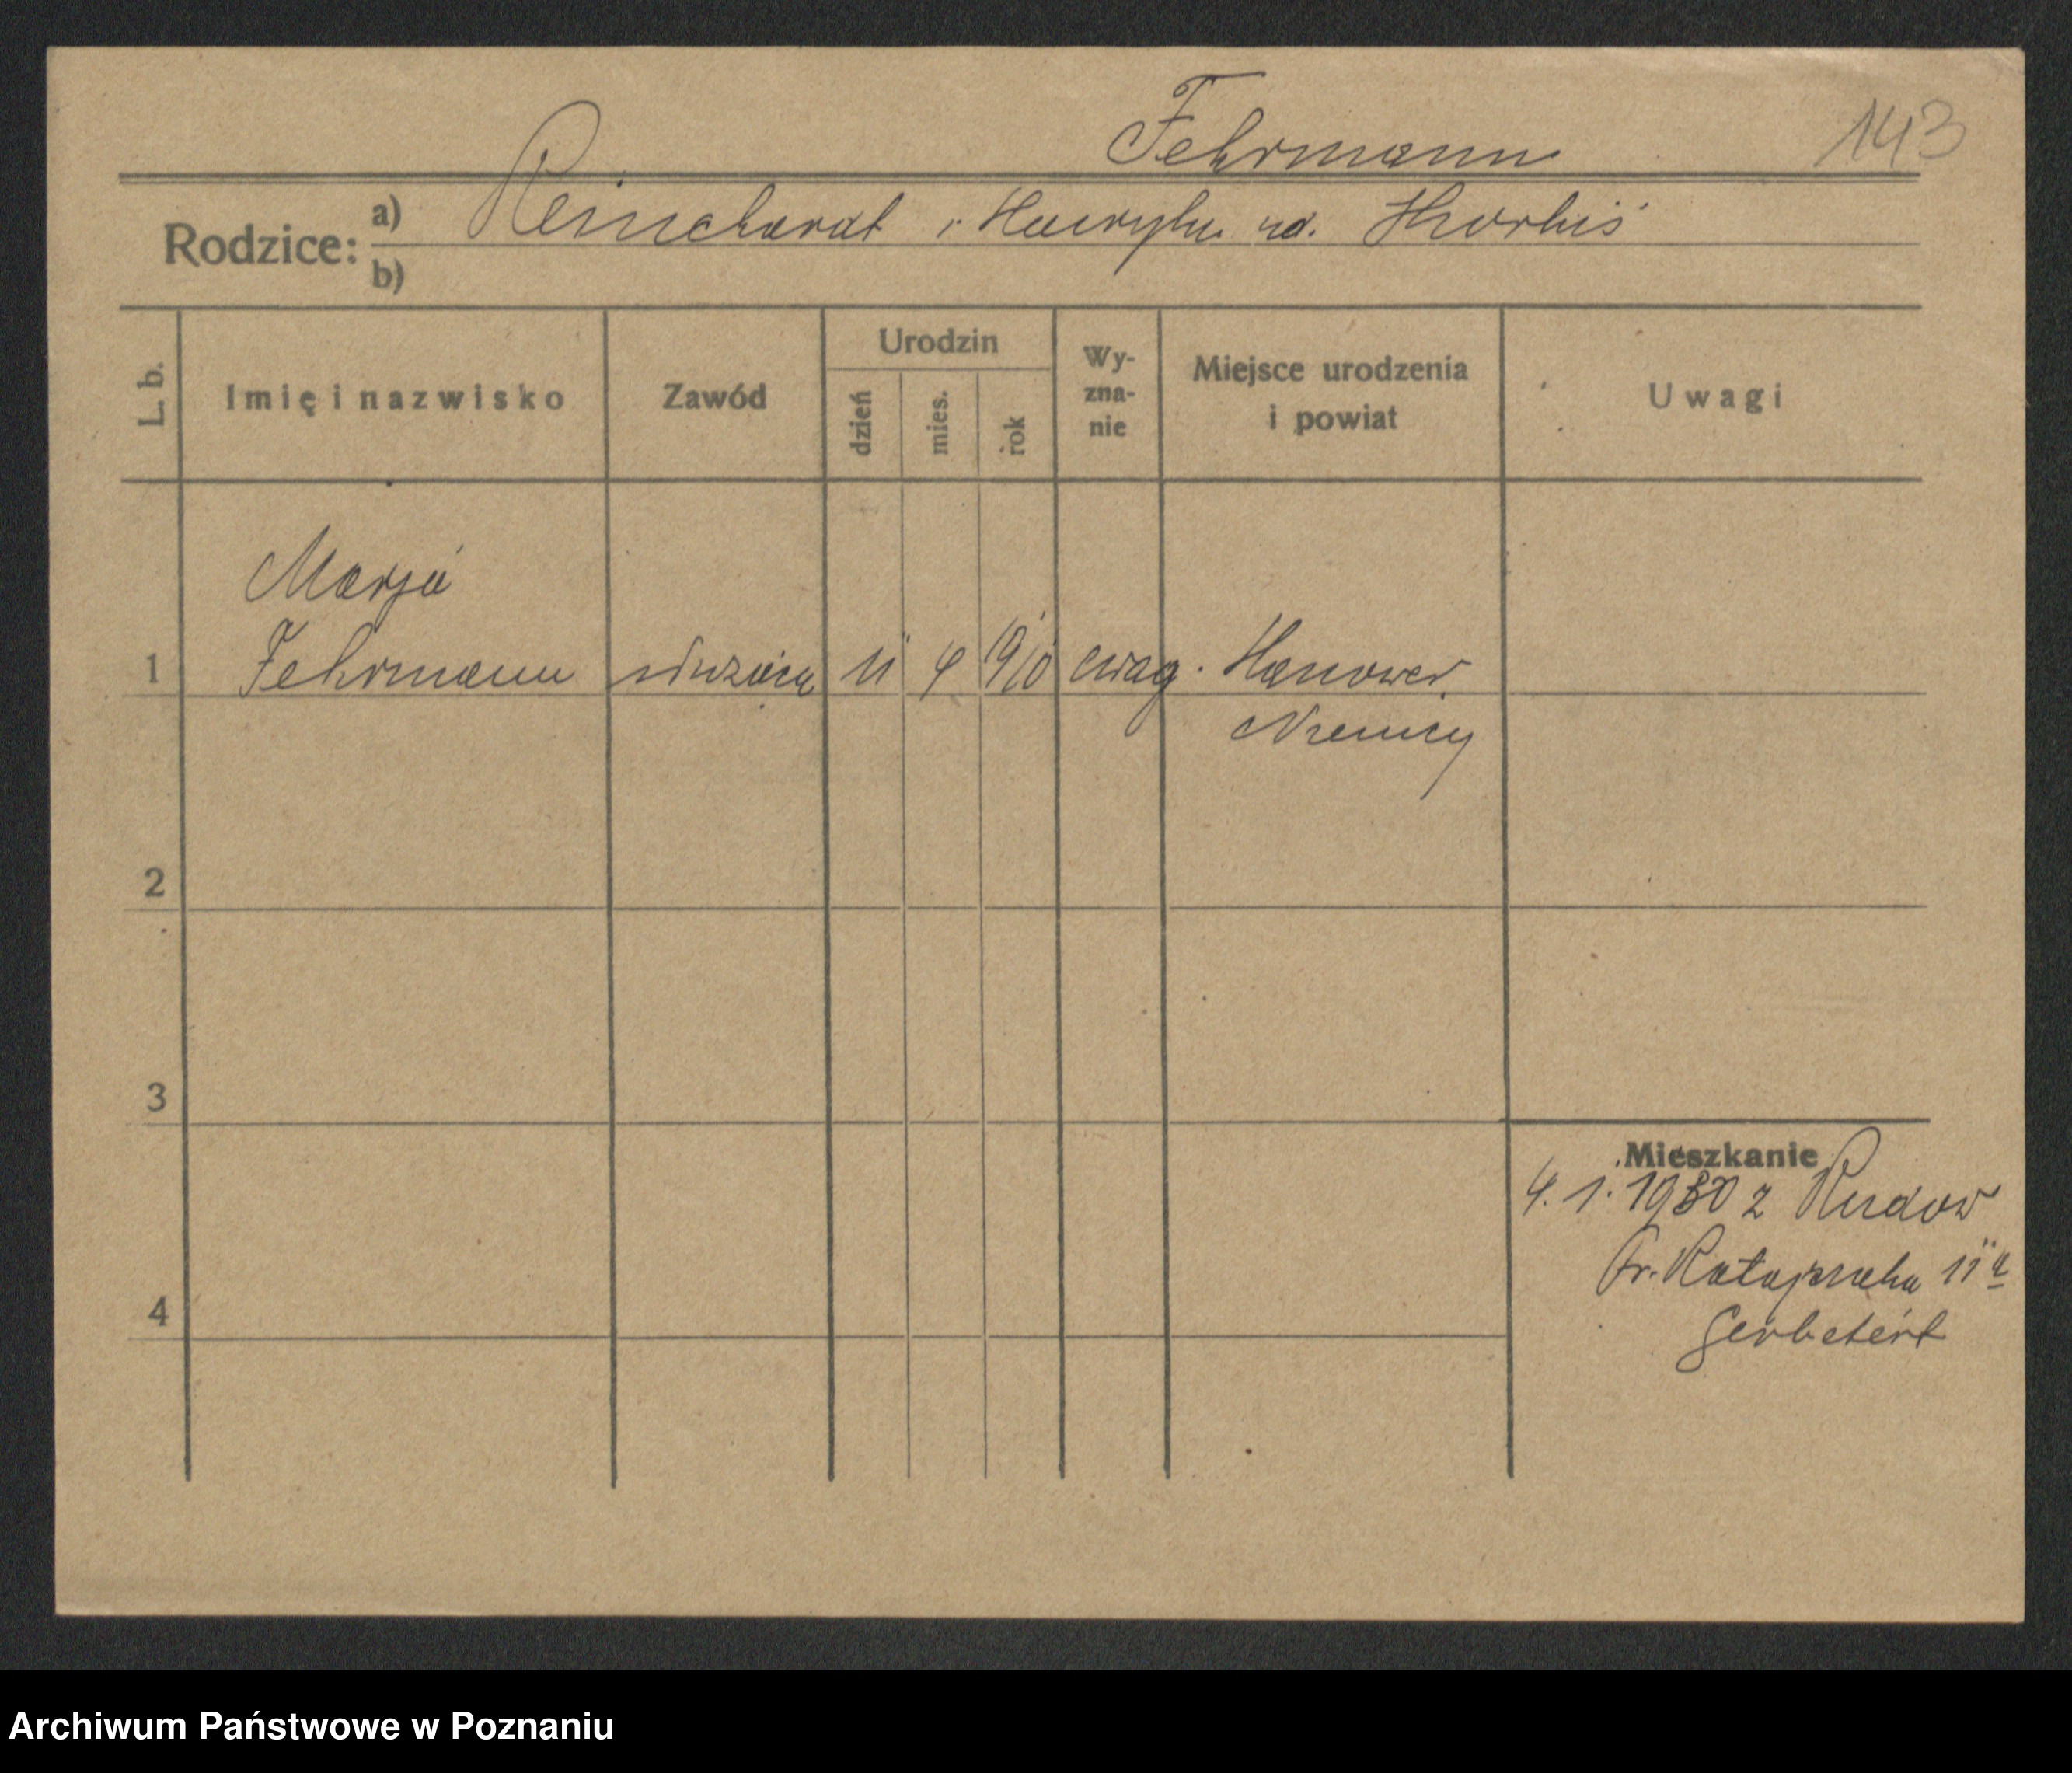 Fehrmann 143
Rodzice: a) Reinchardt i Henryka ur.
b)
L. b. Imię i nazwisko Zawód Urodzin dzień mies. rok Wy-zna-nie Miejsce urodzenia i powiat Uwagi
Marja
1 Fehrmann służąca 11 4 1910 ewag. Hanower
Niemcy
2
3
Mieszkanie
4. 1. 1930 z
Fr. Ratajczaka 11a
4
Archiwum Państwowe w Poznaniu